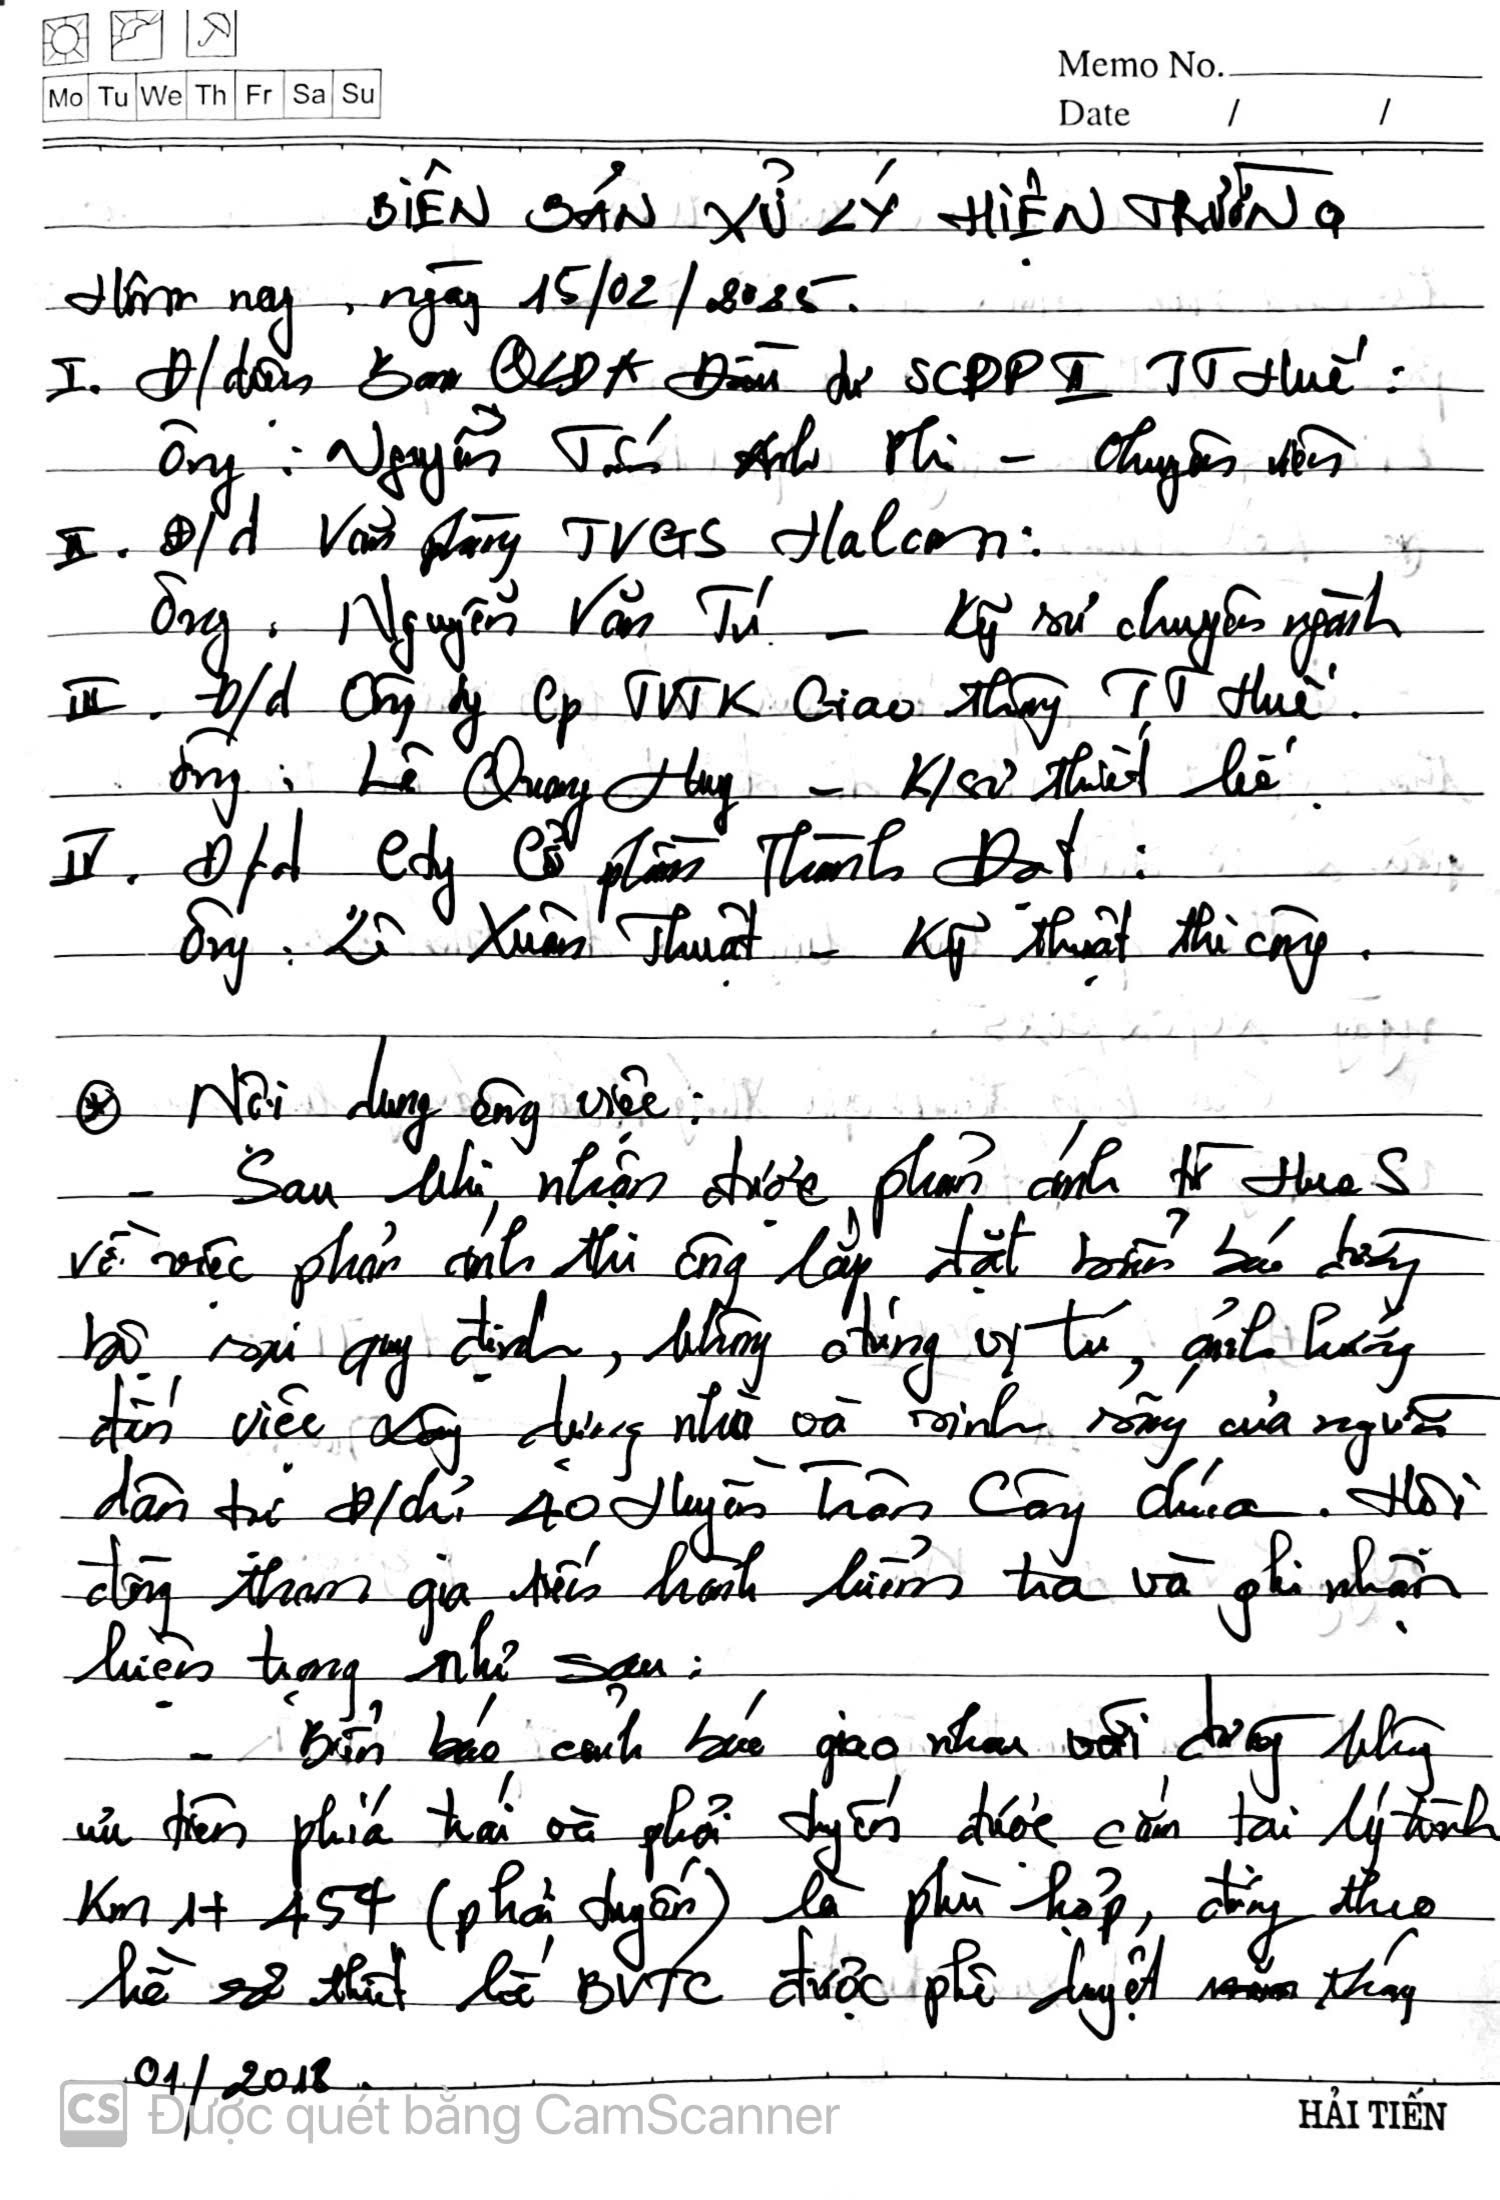 Mo Tu We Th Fr Sa Su
Memo No.
Date / /
BIÊN BẢN XỬ LÝ HIỆN TRƯỜNG
Hôm nay, ngày 15/02/2025.
I. Đ/diện Ban QLDA Đầu tư SCDP II TT Huế:
Ông: Nguyễn Anh Phi - Chuyên viên
II. Đ/d Văn phòng TVGS Halcom:
Ông: Nguyễn Văn Tú - Kỹ sư chuyên ngành
III. Đ/d Công ty Cp TVTK Giao thông TT Huế.
Ông: Lê Quang Huy - K/sư thiết kế
IV. Đ/d Cty Cổ phần Thành Đạt:
Ông: Lê Xuân Thuật - Kỹ thuật thi công.
Nội dung công việc:
- Sau khi nhận được phản ánh từ HueS
về việc phản ánh thi công lắp đặt biển báo đường
bộ sai quy định, không đúng vị trí, ảnh hưởng
đến việc xây dựng nhà và sinh sống của người
dân tại Đ/chỉ 40 Huyền Trân Công chúa. Hội
đồng tham gia tiến hành kiểm tra và ghi nhận
hiện trạng như sau:
- Biển báo cảnh báo giao nhau với đường không
ưu tiên phía trái và phải tuyến được cắm tại lý trình
Km 1+454 (phải tuyến) là phù hợp, đúng theo
hồ sơ thiết kế BVTC được phê duyệt tháng
01/2018.
CS Được quét bằng CamScanner
HẢI TIẾN